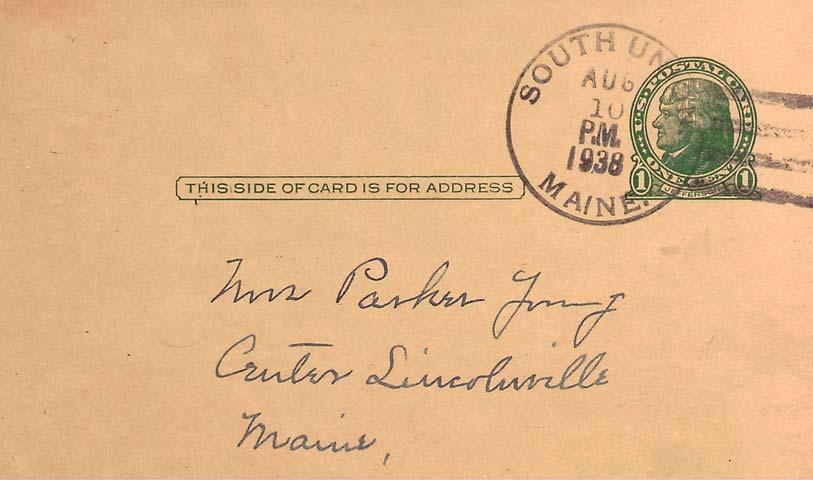 SOUTH UN
AUG
10
P.M.
1938
MAINE.
U.S. POSTAL CARD
ONE CENT
1 JEFFERSON 1
THIS SIDE OF CARD IS FOR ADDRESS
Mrs Parker Young
Center Lincolnville
Maine,